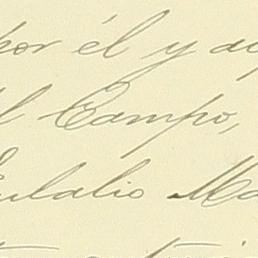 por él y a
el Campo,
Eulalio Ma